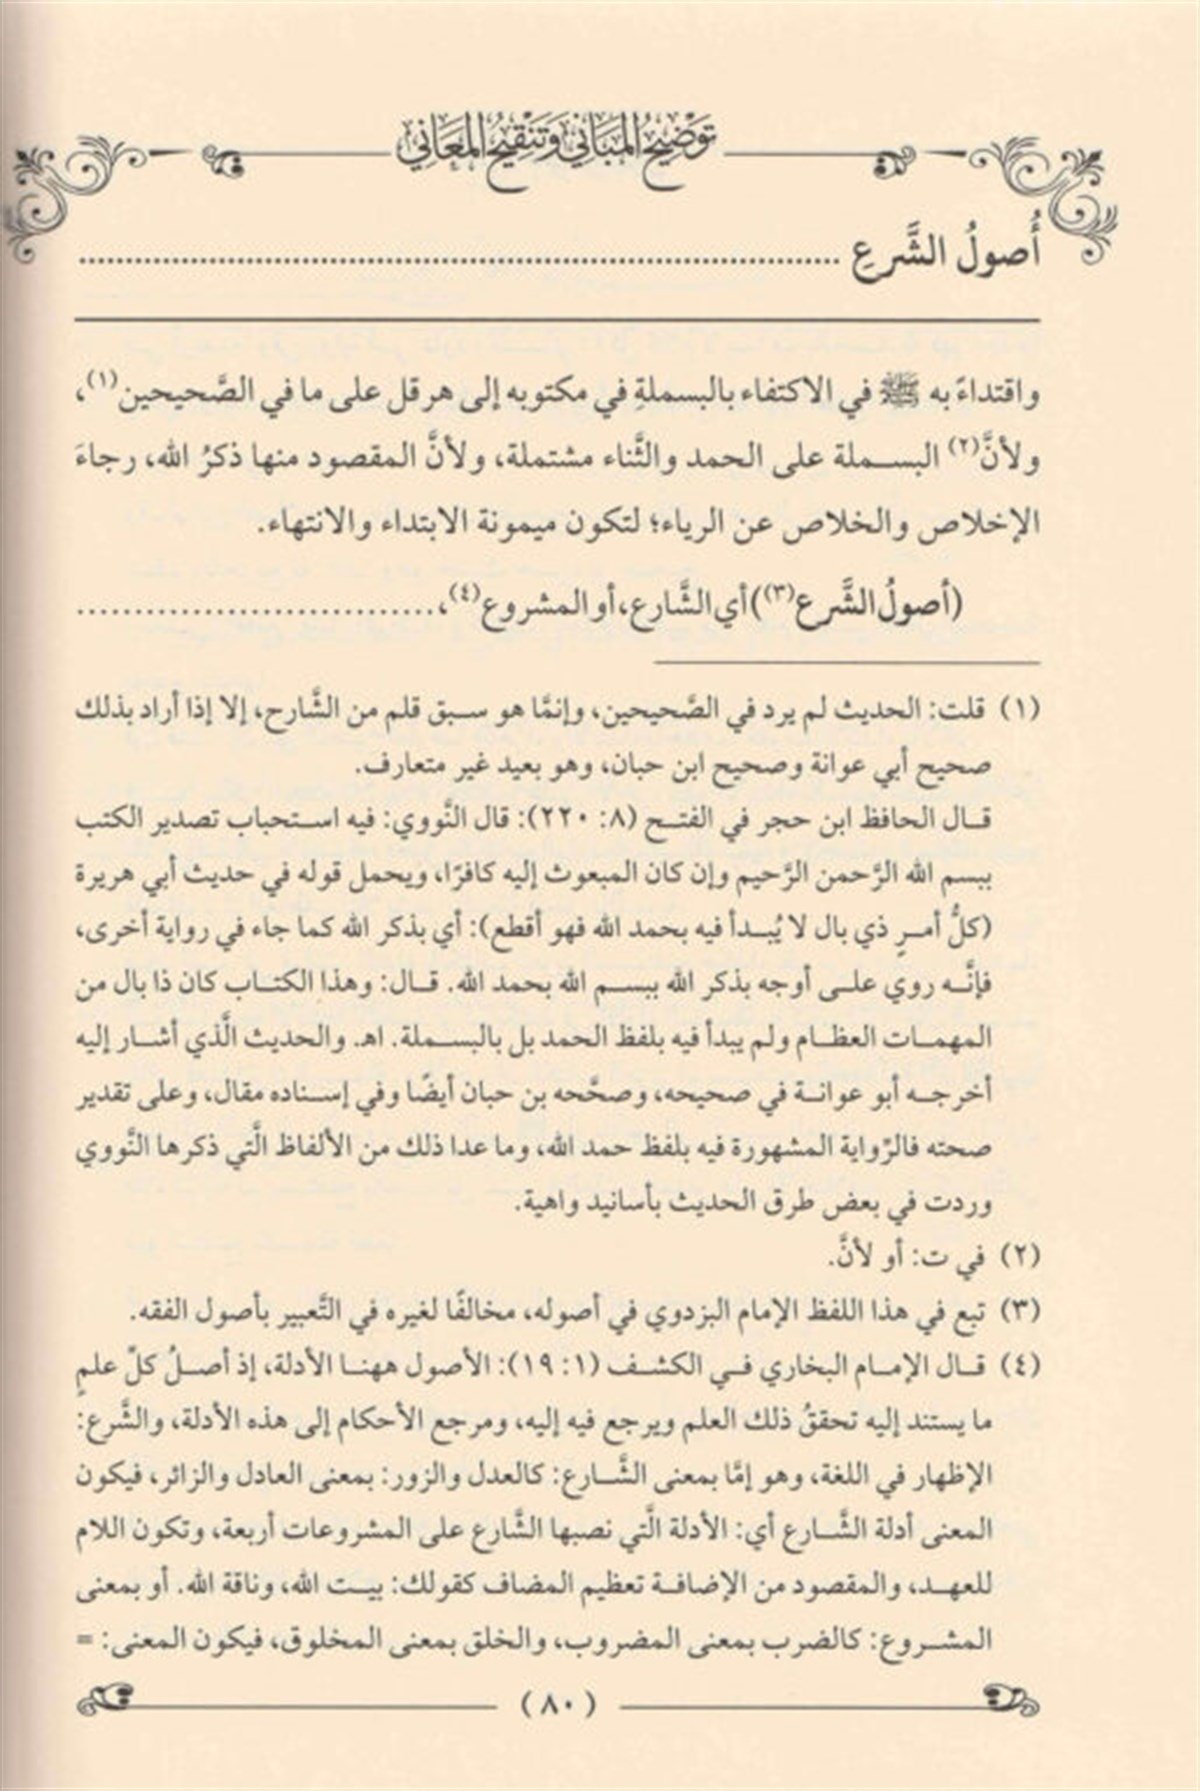 تَوْضِيحُ المَبَانِي وَتَنْقِيحُ المَعَانِي
أُصولُ الشَّرعِ ................................................................................
واقتداءً به ﷺ في الاكتفاء بالبسملةِ في مكتوبه إلى هرقل على ما في الصَّحيحين(١)،
ولأنَّ(٢) البسملة على الحمد والثَّناء مشتملة، ولأنَّ المقصود منها ذكرُ الله، رجاءَ
الإخلاص والخلاص عن الرياء؛ لتكون ميمونة الابتداء والانتهاء.
(أصولُ الشَّرع(٣)) أي الشَّارع، أو المشروع(٤)، ................................
(١) قلت: الحديث لم يرد في الصَّحيحين، وإنمَّا هو سبق قلم من الشَّارح، إلا إذا أراد بذلك
صحيح أبي عوانة وصحيح ابن حبان، وهو بعيد غير متعارف.
قال الحافظ ابن حجر في الفتح (٨: ٢٢٠): قال النَّووي: فيه استحباب تصدير الكتب
ببسم الله الرَّحمن الرَّحيم وإن كان المبعوث إليه كافرًا، ويحمل قوله في حديث أبي هريرة
(كلُّ أمرٍ ذي بال لا يُبدأ فيه بحمد الله فهو أقطع): أي بذكر الله كما جاء في رواية أخرى،
فإنَّه روي على أوجه بذكر الله ببسم الله بحمد الله. قال: وهذا الكتاب كان ذا بال من
المهمات العظام ولم يبدأ فيه بلفظ الحمد بل بالبسملة. اهـ. والحديث الَّذي أشار إليه
أخرجه أبو عوانة في صحيحه، وصحَّحه بن حبان أيضًا وفي إسناده مقال، وعلى تقدير
صحته فالرِّواية المشهورة فيه بلفظ حمد الله، وما عدا ذلك من الألفاظ الَّتي ذكرها النَّووي
وردت في بعض طرق الحديث بأسانيد واهية.
(٢) في ت: أو لأنَّ.
(٣) تبع في هذا اللفظ الإمام البزدوي في أصوله، مخالفًا لغيره في التَّعبير بأصول الفقه.
(٤) قال الإمام البخاري في الكشف (١: ١٩): الأصول ههنا الأدلة، إذ أصلُ كلّ علمٍ
ما يستند إليه تحققُ ذلك العلم ويرجع فيه إليه، ومرجع الأحكام إلى هذه الأدلة، والشَّرع:
الإظهار في اللغة، وهو إمَّا بمعنى الشَّارع: كالعدل والزور: بمعنى العادل والزائر، فيكون
المعنى أدلة الشَّارع أي: الأدلة الَّتي نصبها الشَّارع على المشروعات أربعة، وتكون اللام
للعهد، والمقصود من الإضافة تعظيم المضاف كقولك: بيت الله، وناقة الله. أو بمعنى
المشروع: كالضرب بمعنى المضروب، والخلق بمعنى المخلوق، فيكون المعنى: =
(٨٠)